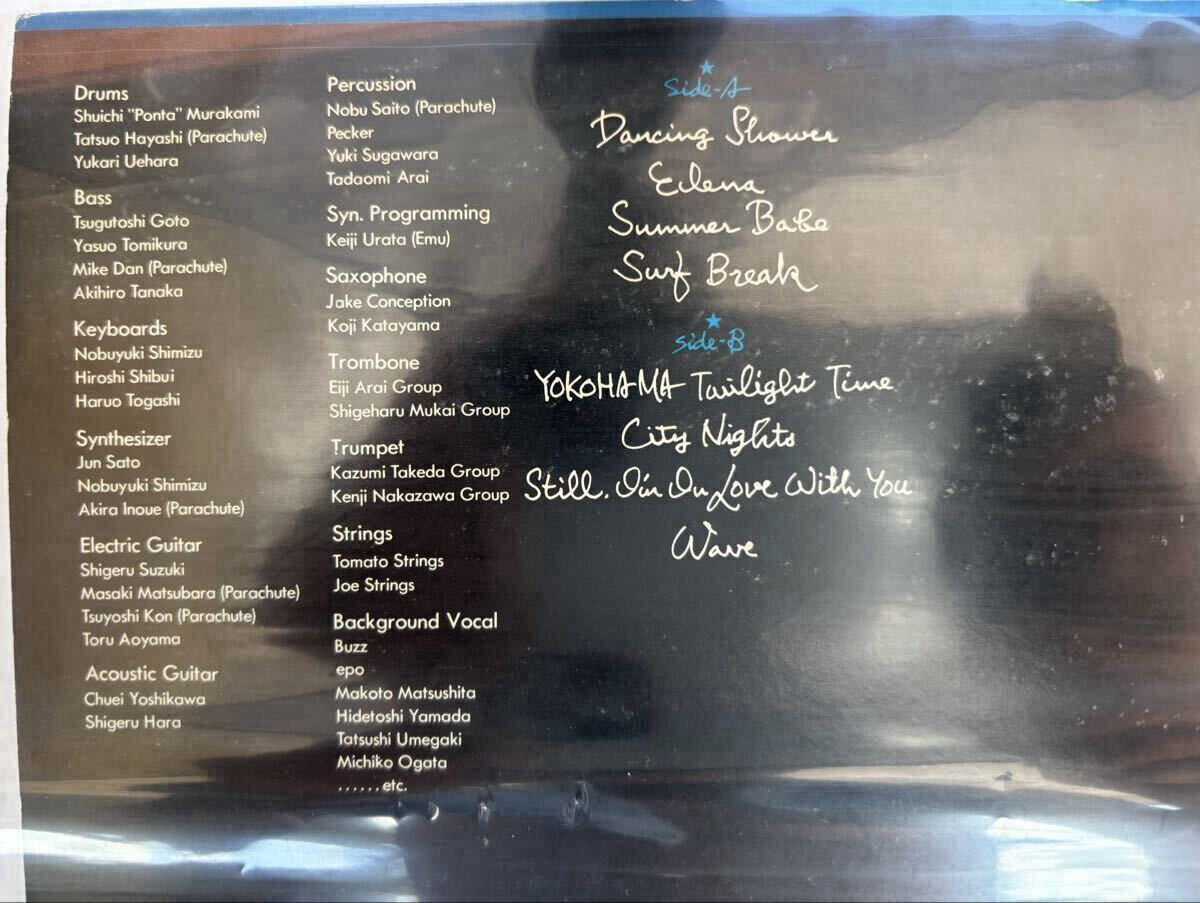 Drums
Shuichi "Ponta" Murakami
Tatsuo Hayashi (Parachute)
Yukari Uehara
Bass
Tsugutoshi Goto
Yasuo Tomikura
Mike Dan (Parachute)
Akihiro Tanaka
Keyboards
Nobuyuki Shimizu
Hiroshi Shibui
Haruo Togashi
Synthesizer
Jun Sato
Nobuyuki Shimizu
Akira Inoue (Parachute)
Electric Guitar
Shigeru Suzuki
Masaki Matsubara (Parachute)
Tsuyoshi Kon (Parachute)
Toru Aoyama
Acoustic Guitar
Chuei Yoshikawa
Shigeru Hara
Percussion
Nobu Saito (Parachute)
Pecker
Yuki Sugawara
Tadaomi Arai
Syn. Programming
Keiji Urata (Emu)
Saxophone
Jake Conception
Koji Katayama
Trombone
Eiji Arai Group
Shigeharu Mukai Group
Trumpet
Kazumi Takeda Group
Kenji Nakazawa Group
Strings
Tomato Strings
Joe Strings
Background Vocal
Buzz
epo
Makoto Matsushita
Hidetoshi Yamada
Tatsushi Umegaki
Michiko Ogata
......etc.
★
Side-A
Dancing Shower
Eilena
Summer Babe
Surf Break
★
Side-B
YOKOHAMA Twilight Time
City Nights
Still. I'm In Love With You
Wave